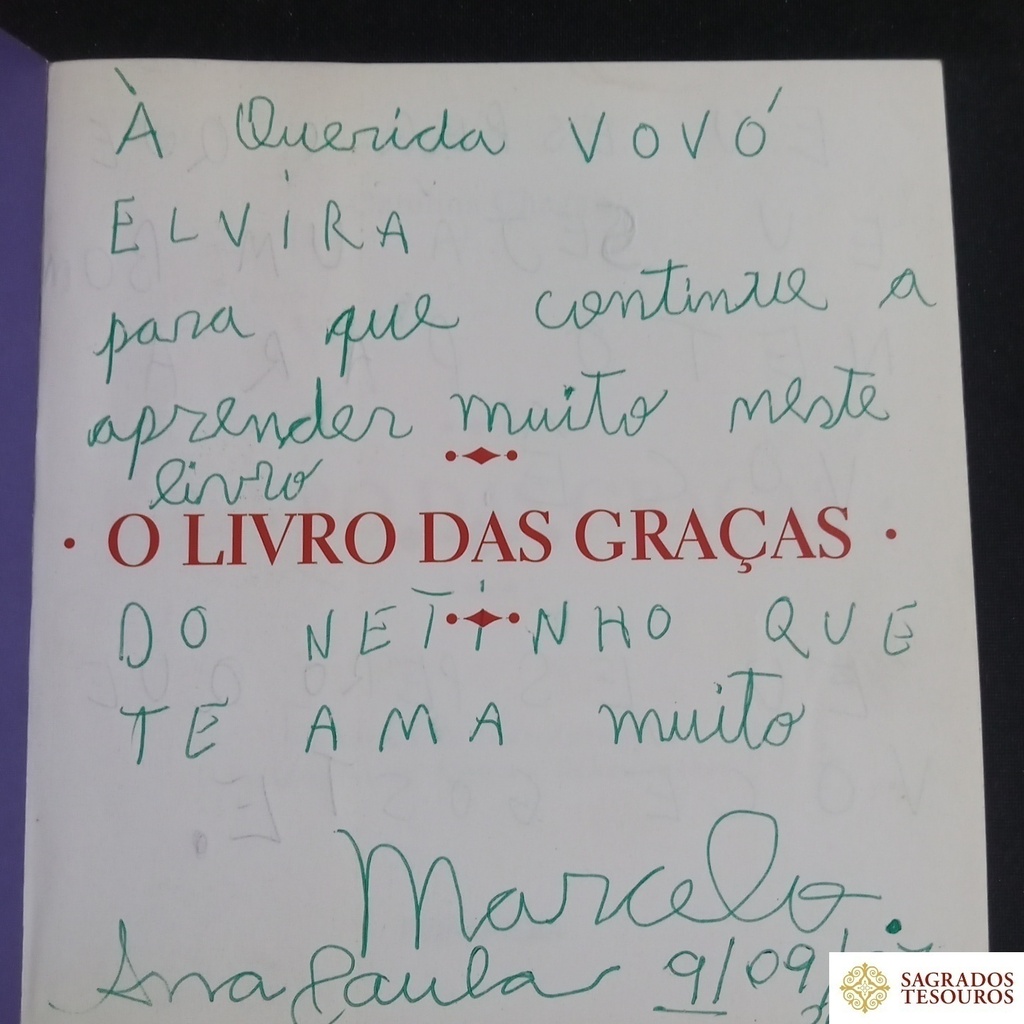 À Querida VOVÓ
ELVIRA
para que continue a
aprender muito neste
livro
· O LIVRO DAS GRAÇAS ·
DO NETINHO QUE
TE AMA muito
Marcelo.
Ana Paula 9/09/
SAGRADOS
TESOUROS